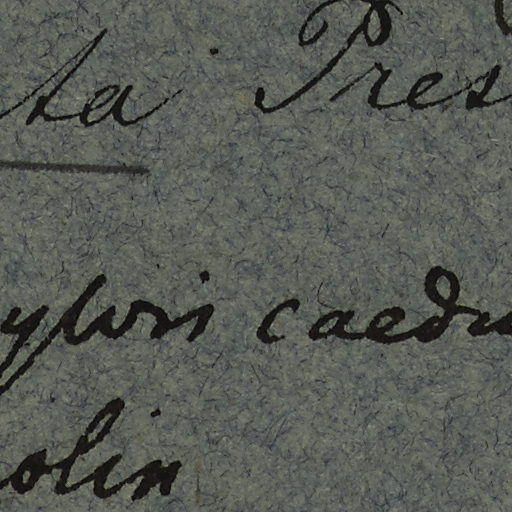 ta Pres
ylvis caedu
olin